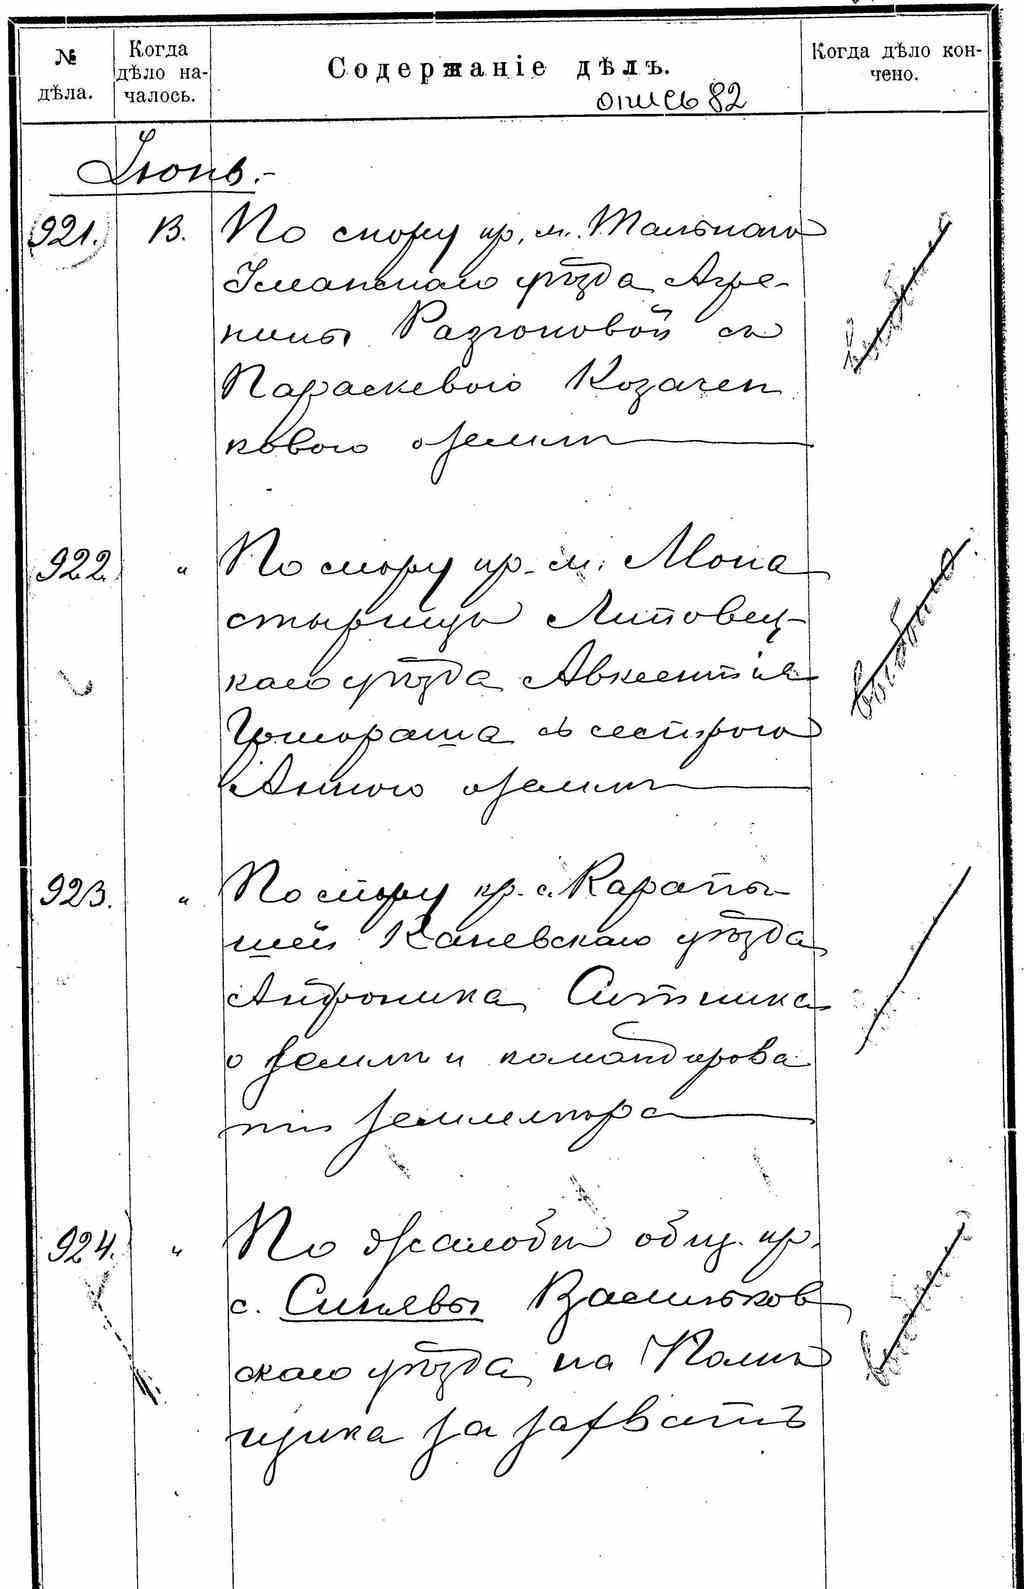 № дѣла.
Когда дѣло началось.
Содержаніе дѣлъ.
Когда дѣло кончено.
опись 82
Іюнь.-
921. 13. По спору кр. м. Тальнаго
Уманскаго уѣзда Агре-
пины Разгоновой съ
Параскевою Козачен
ковою о землѣ
922. " По спору кр. м. Мона
стырища Липовец-
каго уѣзда Авксентія
с сестрою
Анною о землѣ
923. " По спору кр. с. Карапы
шей Каневскаго уѣзда
Андроника Ситника
о землѣ и командирова
ніи землемѣра
924. " По жалобѣ общ. кр.
с. Синявы Васильков
скаго уѣзда на Помѣ
щика за захватъ